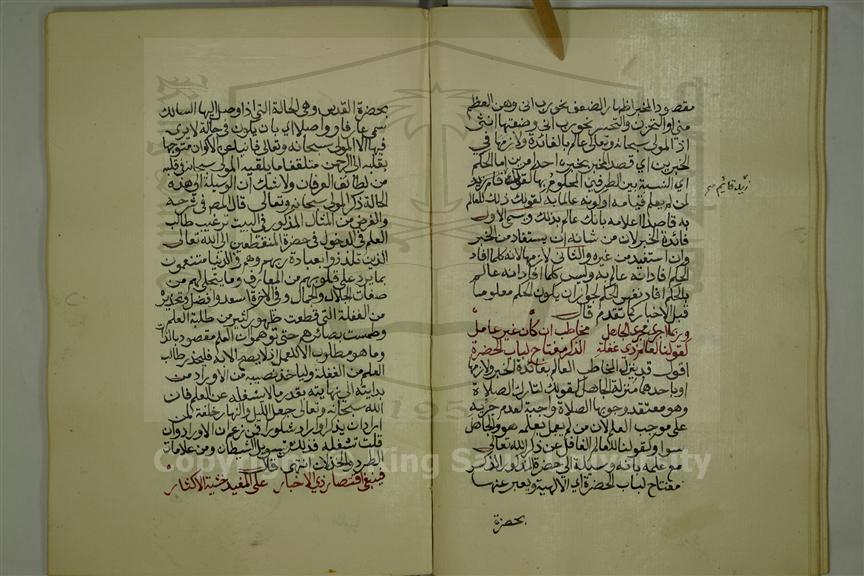 مقصود المخبر اظهار الضعف نحو رب اني وهن العظم
مني او التحزن والتحسر نحو رب اني وضعتها انثى
اذ المولى سبحانه وتعالى عالم بالفائدة ولازمها في
الخبرين اي قصد المخبر بخبره احد امرين اما الحكم
اي النسبة بين الطرفين المعلوم بها كقولك قام زيد
لمن لم يعلم قيامه اولونه عالما به كقولك ذلك للعالم
به قاصدا اعلامه بانك عالم بذلك ويسمى الاول
فائدة الخبر لان من شانه ان يستفاد من الخبر
وان استفيد من غيره والثاني لازمها لانه كلما افاد
الحكم افاد انه عالم به وليس كلما افاد انه عالم
بالحكم افاد نفس الحكم لجواز ان يكون الحكم معلوما
قبل الاخبار كما تقدم قال
وربما اجري مجرى الجاهل مخاطب ان كان غير عامل
كقولنا لعالم ذي غفلة الذكر مفتاح لباب الحضرة
اقول قد ينزل المخاطب العالم بفائدة الخبر ولازمها
او باحدهما منزلة الجاهل كقولك لتارك الصلاة
وهو معتقد وجوبها الصلاة واجبة لعدم جريه
على موجب العلم لان من لم يعمل بعلمه هو والجاهل
سوا وكقولنا للعالم الغافل عن ذكر الله تعالى
مع علمه بانه وسيلة الى حضرة الذكر
مفتاح لباب الحضرة اي الالهية ويعبر عنها
بحضرة
زيد قائم
بحضرة القدس وهي الحالة التي اذا وصل اليها السالك
سمي عارفا وواصلا اي بان يكون في حالة لا يرى
فيها الا المولى سبحانه وتعالى فانيا عن الاكوان متوجها
بقلبه الى الرحمن متلقفا ما يلقيه المولى سبحانه في قلبه
من لطائف العرفان ولا شك ان الوسيلة الى هذه
الحالة ذكر المولى سبحانه وتعالى قال المص في شرحه
والغرض من المثال المذكور في البيت ترغيب طالب
العلم في الدخول في حضرة المنقطعين الى الله تعالى
الذين تلذذوا بعبادة ربهم وهم في الدنيا متنعمون
بما يرد على قلوبهم من المعارف وما يتجلى لهم من
صفات الجلال والجمال وفي الاخرة اسعد وافضل وتحذير
من الغفلة التي قطعت ظهور كثير من طلبة العلم
وطمست بصائرهم حتى توهموا ان العلم مقصود بالذات
وما هو مطلوب الا للعمل اذ لا يصح الا به فليحذر طالب
العلم من الغفلة ولياخذ نصيبه من الاوراد من
بدايته الى نهايته بقدر ما لا يشغله عن العلم فان
الله سبحانه وتعالى جعل الليل والنهار خلفة لمن
اراد ان يذكر او اراد شكورا فمن زعم ان الاوراد وان
قلت تشغله فذلك من تسويل الشيطان ومن علامات
الطرد والخذلان انتهى قال
فينبغي اقتصار ذي الاخبار على المفيد خشية الاكثار